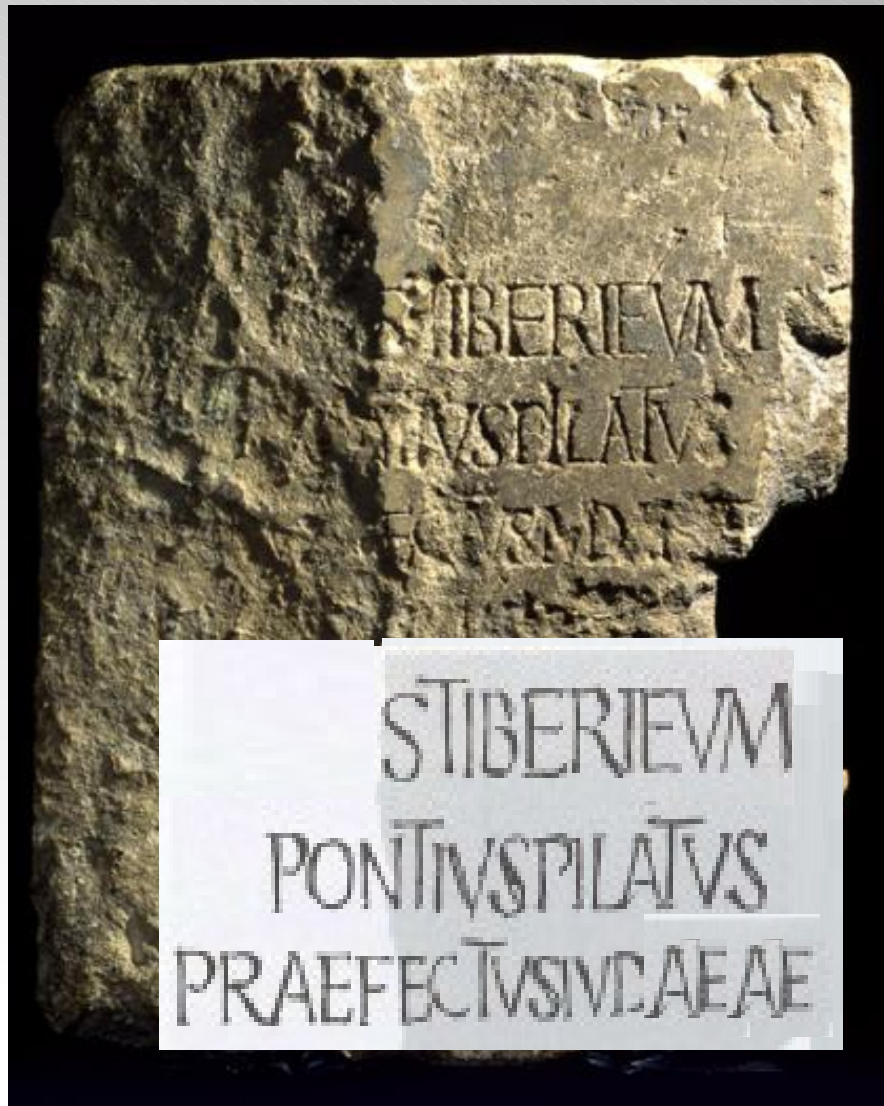 STIBERIEVM
TIVSPILATVS
ECTVSIVDAE
STIBERIEVM
PONTIVSPILATVS
PRAEFECTVSIVDAEAE